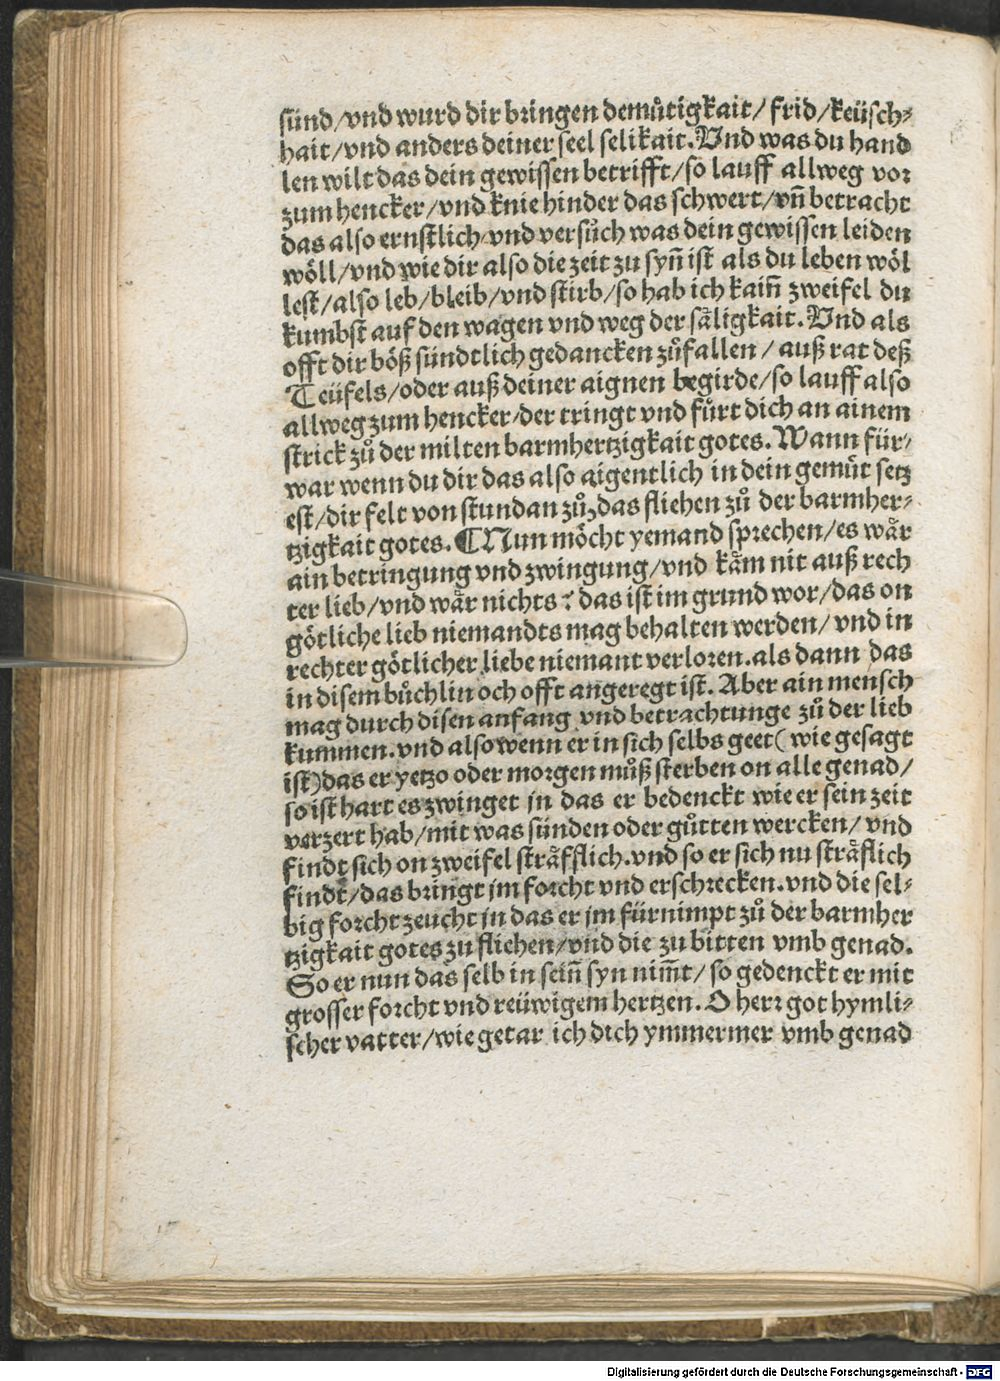 sünd/vnd wurd dir bringen demuͤtigkait/ frid/keüsch⸗
hait/vnd anders deiner seel selikait. Vnd was du hand
len wilt das dein gewissen betrifft/so lauff allweg vor
zum hencker/vnd knie hinder das schwert/vñ betracht
das also ernstlich vnd versuͤch was dein gewissen leiden
woͤll/vnd wie dir also die zeit zu syñ ist als du leben woͤl
lest/also leb/bleib/vnd stirb/so hab ich kaiñ zweifel du
kumbst auf den wagen vnd weg der saͤligkait. Vnd als
offt dir boͤß sündtlich gedancken zuͦfallen / auß rat deß
Teüfels/oder auß deiner aignen begirde/so lauff also
allweg zum hencker/der tringt vnd fuͤrt dich an ainem
strick zuͦ der milten barmhertzigkait gotes. Wann für⸗
war wenn du dir das also aigentlich in dein gemuͤt setz
est/dir felt von stundan zuͦ, das fliehen zuͦ der barmher⸗
tzigkait gotes. ¶ Nun moͤcht yemand sprechen/es waͤr
ain betringung vnd zwingung/vnd kaͤm nit auß rech
ter lieb/vnd waͤr nichts: das ist im grund wor/das on
goͤtliche lieb niemandts mag behalten werden/ vnd in
rechter goͤtlicher liebe niemant verloren. als dann das
in disem buͤchlin och offt angeregt ist. Aber ain mensch
mag durch disen anfang vnd betrachtunge zuͦ der lieb
kummen. vnd also wenn er in sich selbs geet( wie gesagt
ist) das er yetzo oder morgen muͦß sterben on alle genad/
so ist hart es zwinget jn das er bedenckt wie er sein zeit
verzert hab/mit was sünden oder guͦtten wercken/ vnd
findt sich on zweifel straͤfflich. vnd so er sich nu straͤflich
findt/das bringt jm forcht vnd erschrecken. vnd die sel⸗
big forcht zeucht jn das er jm fürnimpt zuͦ der barmher
tzigkait gotes zu fliehen/vnd die zu bitten vmb genad.
So er nun das selb in seiñ syn nim̄t/ so gedenckt er mit
grosser forcht vnd reüwigem hertzen. O herr got hymli⸗
scher vatter/wie getar ich dich ymmermer vmb genad
Digitalisierung gefördert durch die Deutsche Forschungsgemeinschaft - DFG